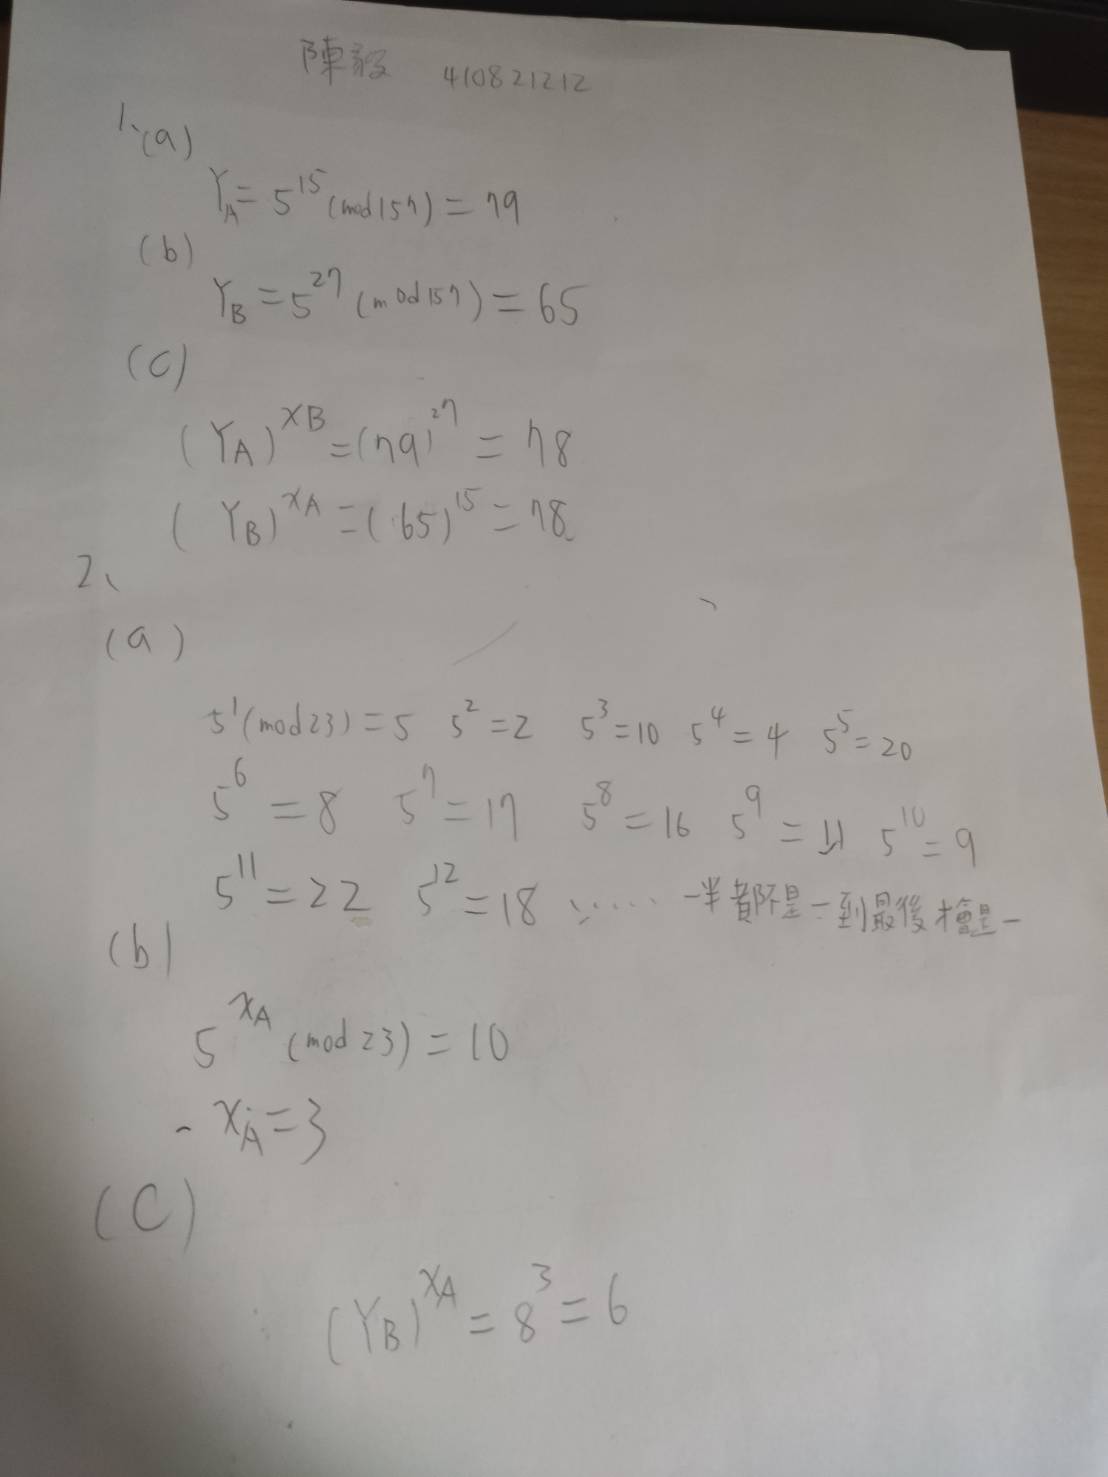 陳毅 410821212
1、(a)
Y_A = 5^15 (mod 157) = 79
(b)
Y_B = 5^27 (mod 157) = 65
(c)
(Y_A)^XB = (79)^27 = 78
(Y_B)^XA = (65)^15 = 78
2、
(a)
5^1 (mod 23) = 5 5^2 = 2 5^3 = 10 5^4 = 4 5^5 = 20
5^6 = 8 5^7 = 17 5^8 = 16 5^9 = 11 5^10 = 9
5^11 = 22 5^12 = 18 ...... 一半都不是一到最後才會是一
(b)
5^XA (mod 23) = 10
X_A = 3
(C)
(Y_B)^XA = 8^3 = 6